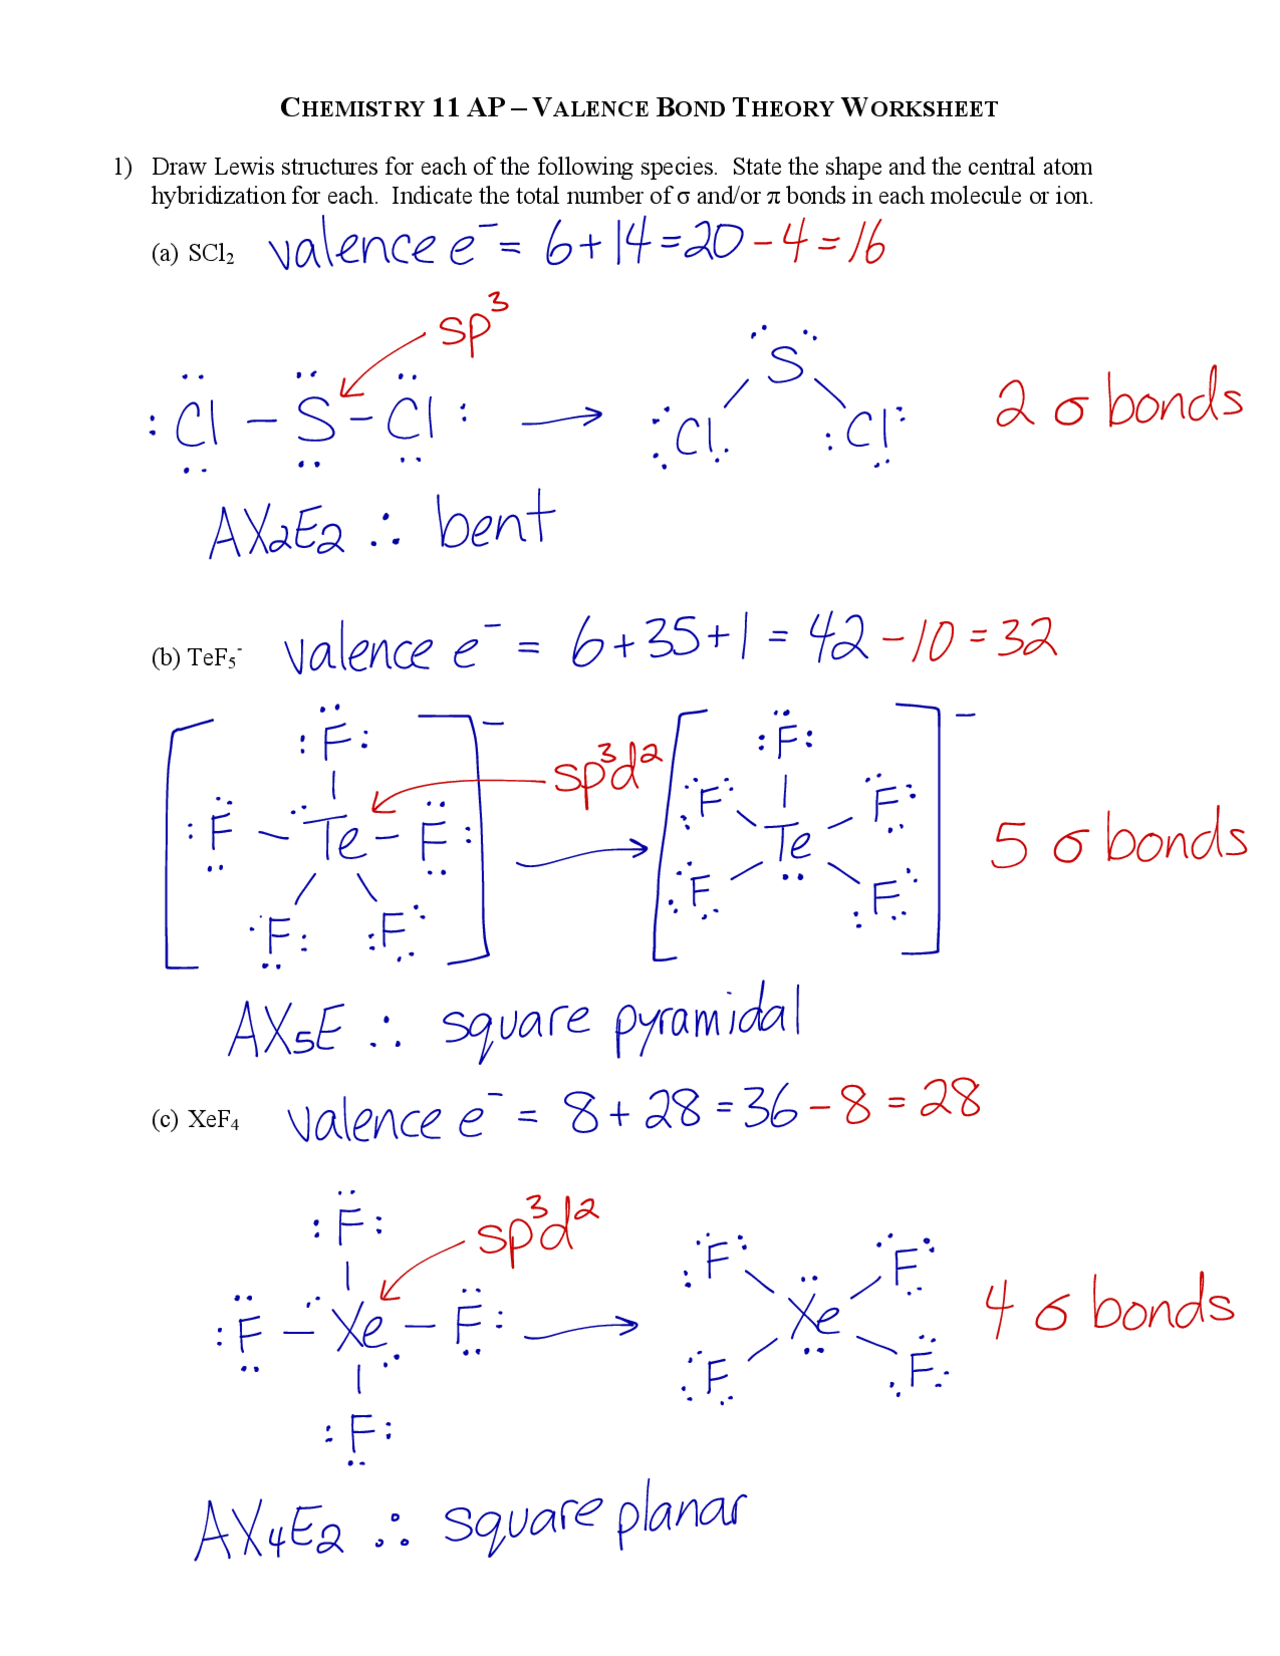 CHEMISTRY 11 AP – VALENCE BOND THEORY WORKSHEET
1) Draw Lewis structures for each of the following species. State the shape and the central atom
hybridization for each. Indicate the total number of σ and/or π bonds in each molecule or ion.
(a) SCl₂ valence e⁻ = 6+14=20-4=16
sp³
:Cl – S – Cl: → S
Cl Cl: 2 σ bonds
AX₂E₂ ∴ bent
(b) TeF₅⁻ valence e⁻ = 6+35+1 = 42-10=32
[:F: ]⁻ sp³d² [:F: ]⁻
F F
:F – Te – F: → Te 5 σ bonds
F F
F: :F
AX₅E ∴ square pyramidal
(c) XeF₄ valence e⁻ = 8+28=36-8=28
:F: sp³d² F F
:F – Xe – F: → Xe 4 σ bonds
F F
:F:
AX₄E₂ ∴ square planar